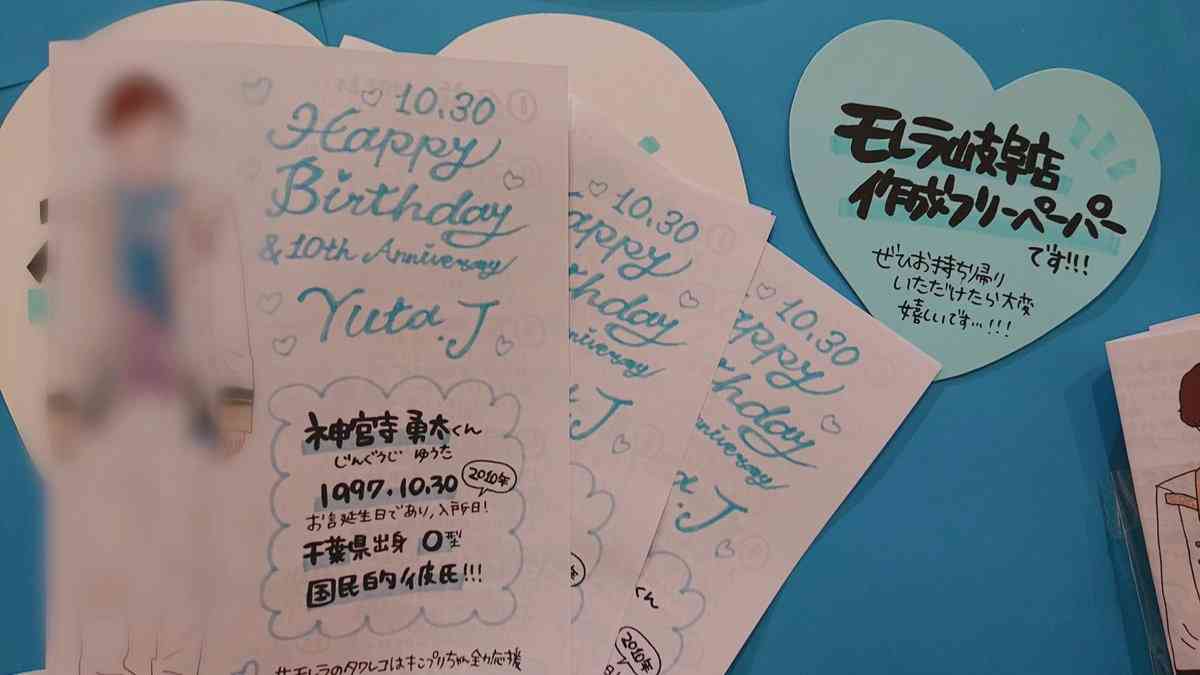 10.30
Happy
Birthday
& 10th Anniversary
Yuta.J
神宮寺勇太くん
じんぐうじ ゆうた
1997.10.30
2010年
お誕生日であり、入所日!
千葉県出身 O型
国民的彼氏!!!
#モレラのタワレコはキンプリちゃん全力応援
10.30
appy
thday
nniversary
J
10.30
appy
thday
nniversary
.J
くん
2010年
モレラ岐阜店
作成フリーペーパー
です!!!
ぜひお持ち帰り
いただけたら大変
嬉しいです…!!!